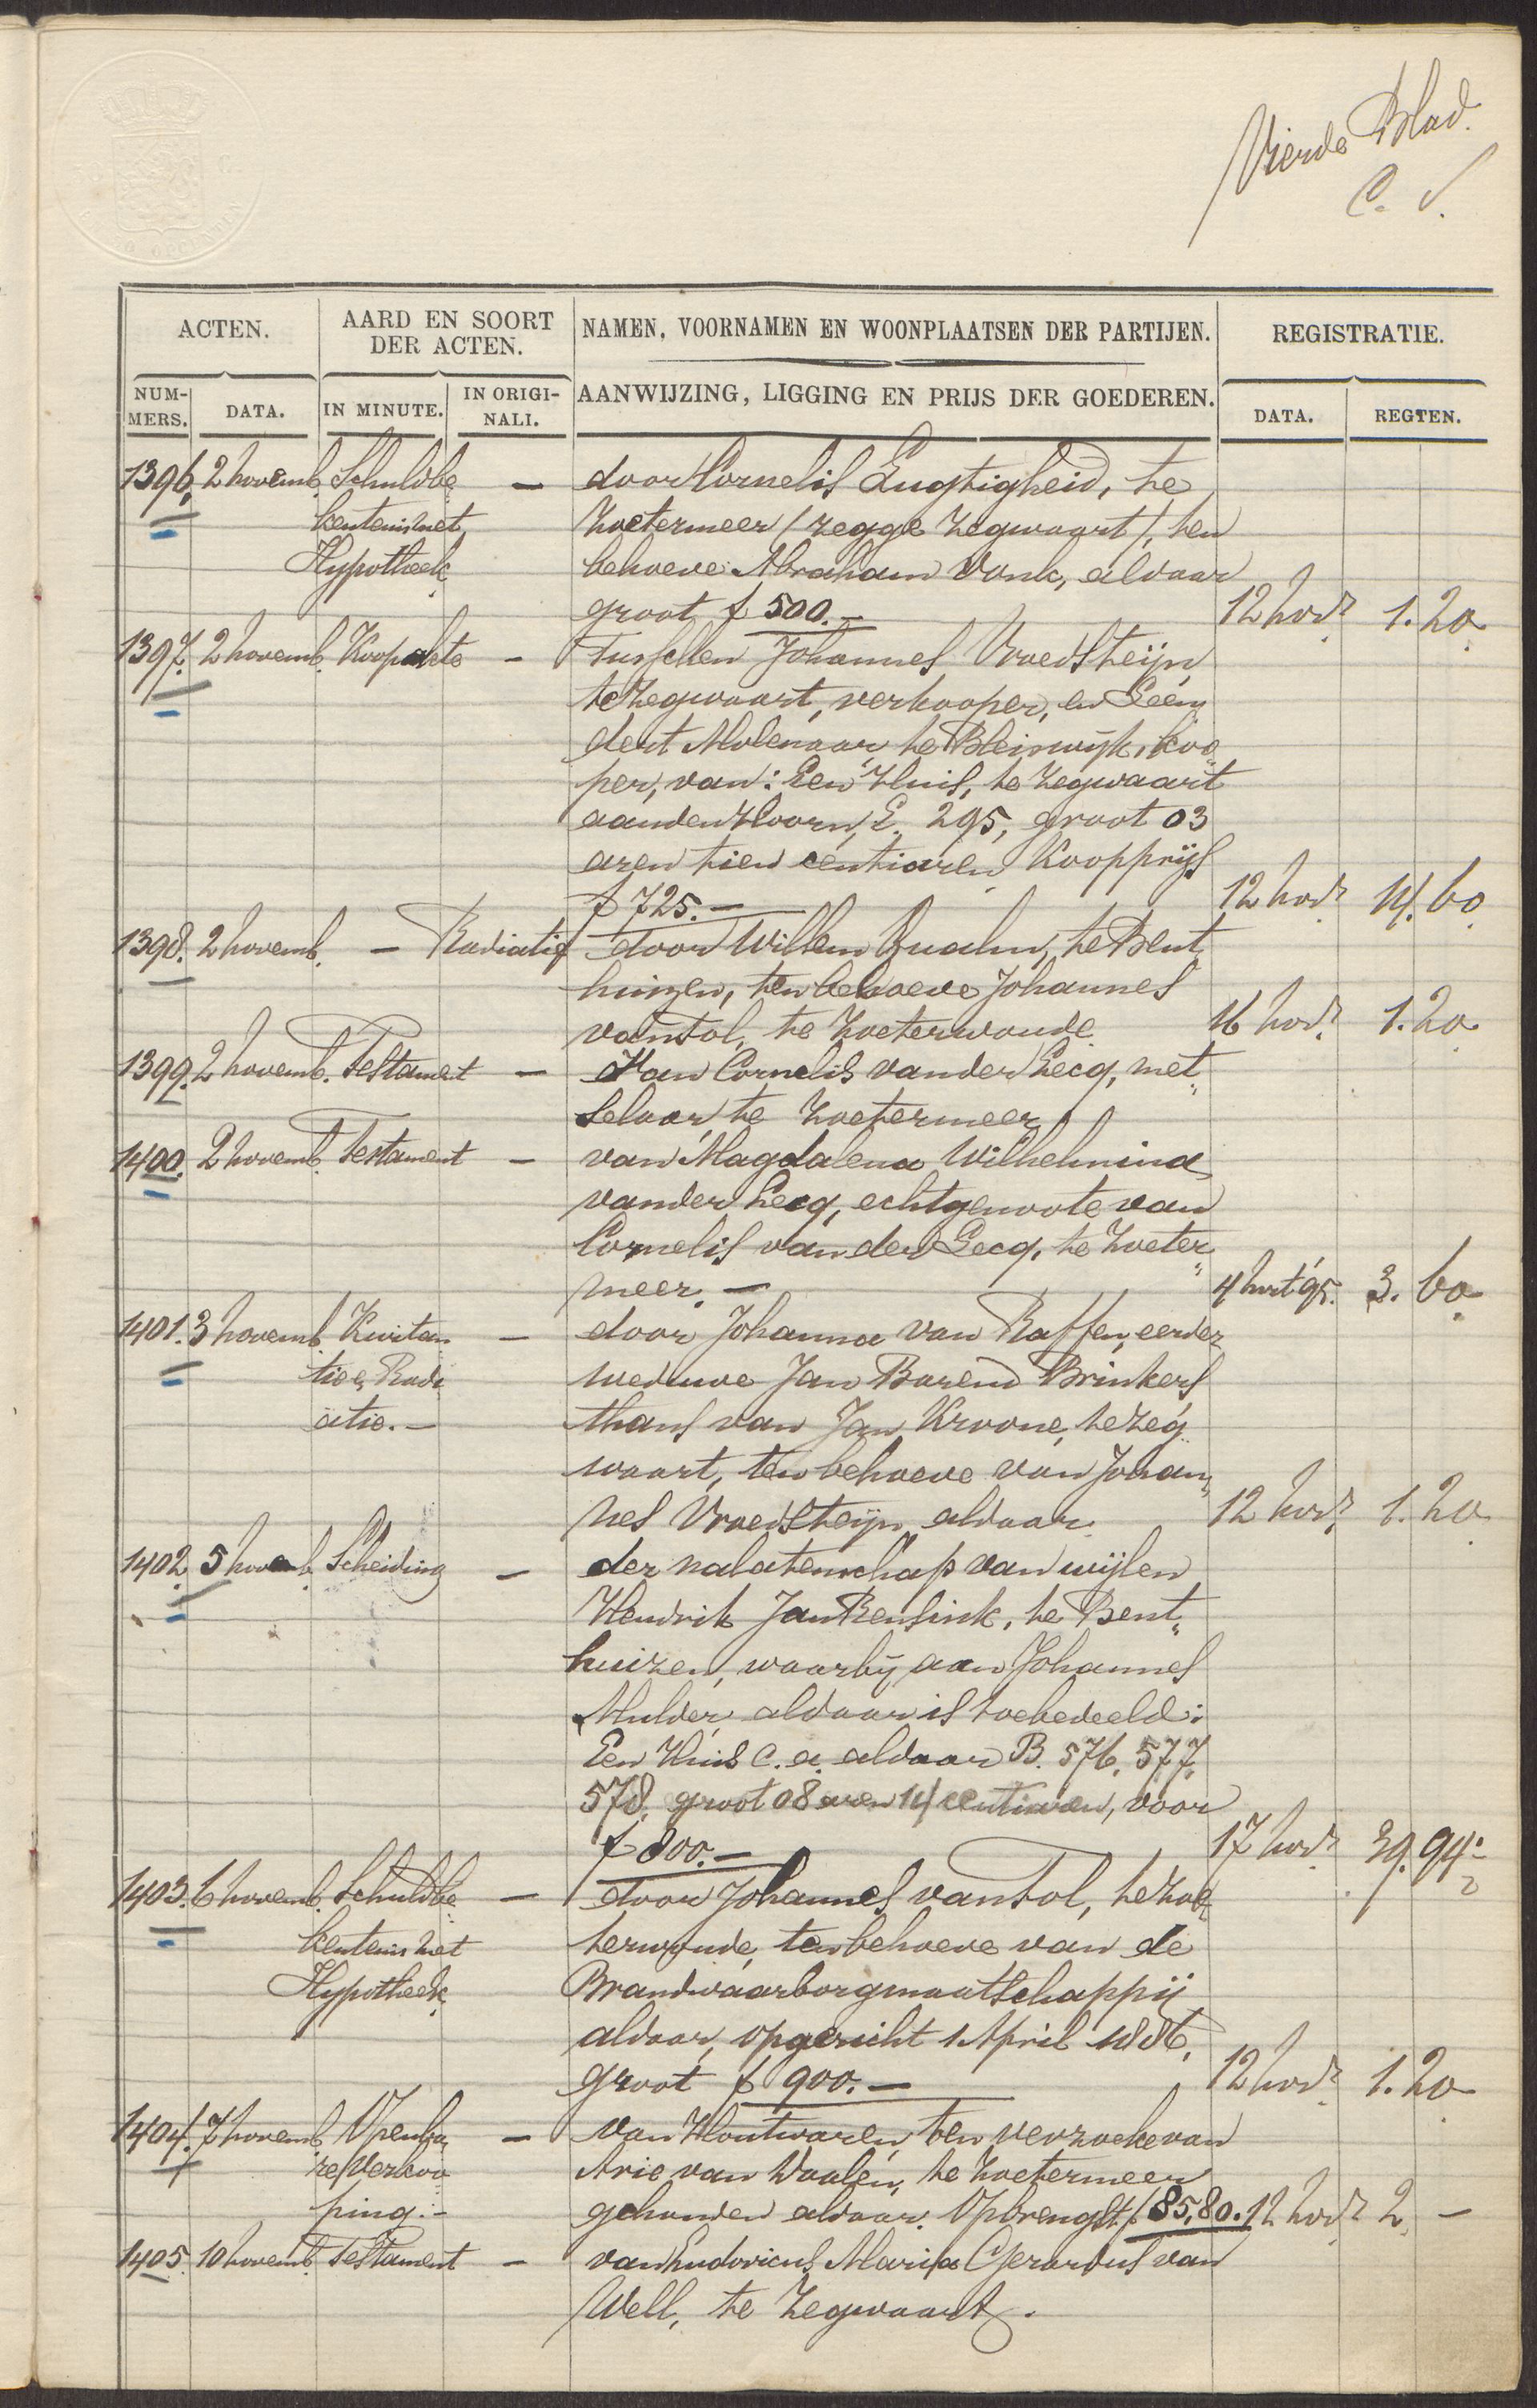 Vierde Blad.
C. S.
ACTEN.
AARD EN SOORT DER ACTEN.
NAMEN, VOORNAMEN EN WOONPLAATSEN DER PARTIJEN.
REGISTRATIE.
NUM-MERS.
DATA.
IN MINUTE.
IN ORIGI-NALI.
AANWIJZING, LIGGING EN PRIJS DER GOEDEREN.
DATA.
REGTEN.
1396, 2 novemb. Schuldbe — door Cornelis Lugtigheid, te
kentenis met Zoetermeer (zegge Zegwaart), ten
Hypotheek behoeve Abraham Vonk, aldaar
groot f 500.— 12 nov. 1.20
1397. 2 novemb. Koopakte — Tusschen Johannes Vroedsteijn
te Zegwaart, verkooper, en Leen
dert Molenaar, te Bleiswijk, koo
per, van: Een Huis, te Zegwaart
aan den Hoorn, E. 295, groot 03
aren tien centiaren Koopprijs
f 725.— 12 nov. 14.60
1398. 2 novemb. — Radiatie door Willem te Bent
huizen, ten behoeve Johannes
van Tol, te Zoeterwoude 16 nov. 1.20
1399. 2 novemb. Testament — van Cornelis van der Lecq, met„
selaar, te Zoetermeer
1400. 2 novemb. Testament — van Magdalena Wilhelmina
van der Lecq, echtgenoote van
Cornelis van der Lecq, te Zoeter„
meer.— 4 95. 3.60
1401. 3 novemb. Kwitan — door Johanna van Raffen, eerder
tie & Radi weduwe Jan Barend Brinkers
atie.— thans van Jan Kroone, te Zeg„
waart, ten behoeve van Johan„
nes Vroedsteijn aldaar. 12 nov. 1.20
1402. 5 novemb. Scheiding — der nalatenschap van wijlen
Hendrik Jan Rensink, te Bent„
huizen, waarbij aan Johannes
Mulder, aldaar is toebedeeld:
Een Huis c.a. aldaar B. 576, 577,
578, groot 08 aren 14 centiaren, voor
f 800.— 17 nov. 39.94
1403. 6 novemb. Schuldbe — door Johannes van Tol, te Zoe„
kentenis met terwoude, ten behoeve van de
Hypotheek Brandwaarborgmaatschappij
aldaar, opgericht 1 April 1886,
groot f 900.— 12 nov. 1.20
1404. 7 novemb. Openba — van Houtwaren, ten verzoeke van
re Verkoo Arie van Waalen, te Zoetermeer
ping.— gehouden aldaar. Opbrengst f 85,80. 12 nov. 2.—
1405. 10 novemb. Testament — van Ludovicus Maria Gerardus van
Well, te Zegwaart.